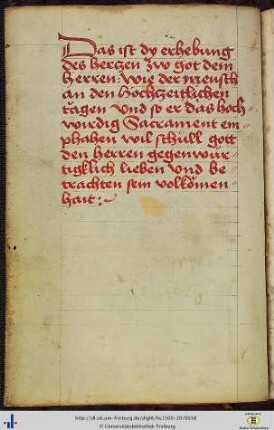 Das ist dy erhebung
des hertzen zwo got dem
herren: wie der mensch
an den hochzeitlichen
tagen und so er das hoch
wirdig Sacrament em
phahen wil schüll gott
den herren gegenwür
tigklich lieben und be
trachten sein volkömen
hait :~
http://dl.ub.uni-freiburg.de/diglit/hs1500-20/0038
© Universitätsbibliothek Freiburg